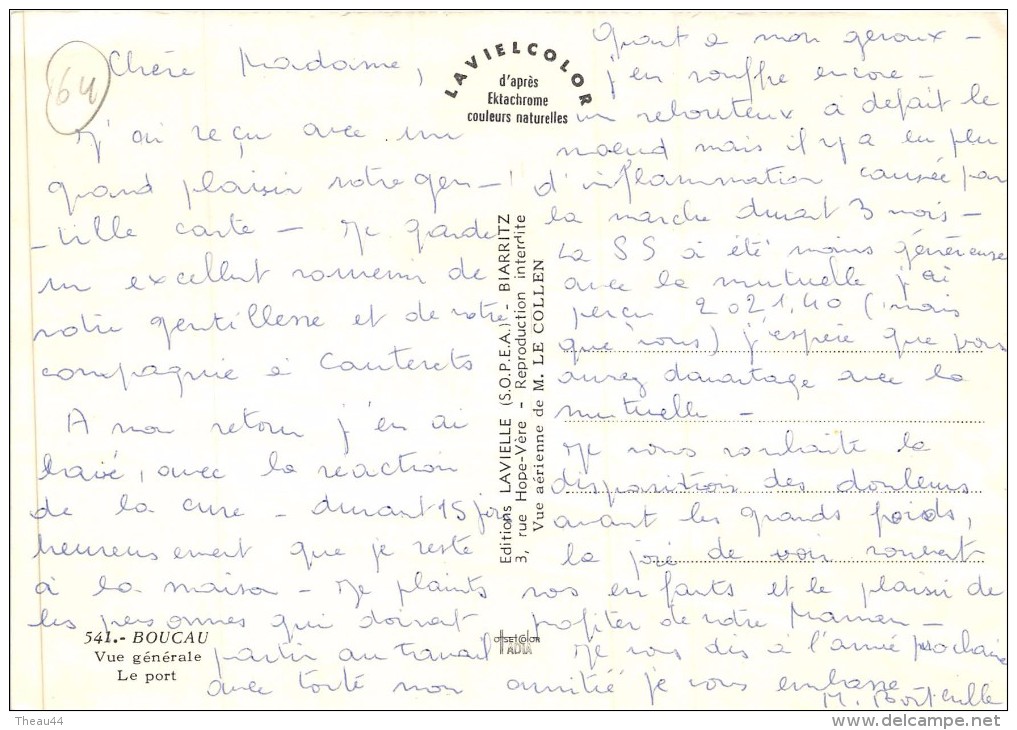 64
Chère Madame,
J'ai reçu avec un
grand plaisir votre gen-
-tille carte - Je garde
un excellent souvenir de
votre gentillesse et de votre
compagnie à Cauterets
A mon retour j'en ai
bavé, avec la réaction
de la cure - durant 15 jours
heureusement que je reste
à la maison - Je plaints
les personnes qui doivent
partir au travail
Quant a mon genoux -
j'en souffre encore -
un rebouteux a defait le
noeud mais il y a un peu
d'inflammation causée par
la marche durant 3 mois -
La SS a été moins généreuse
avec la mutuelle j'ai
perçu 2021,40 (mais
que vous) j'espère que vous
aurez davantage avec la
mutuelle -
Je vous souhaite la
disparition des douleurs
avant les grands froids,
la joie de voir souvent
vos enfants et le plaisir de
profiter de votre Maman -
Je vous dis à l'année prochaine
avec toute mon amitié je vous embrasse
LAVIELCOLOR
d'après
Ektachrome
couleurs naturelles
Editions LAVIELLE (S.O.P.E.A.) - BIARRITZ
3, rue Hope-Vère - Reproduction interdite
Vue aérienne de M. LE COLLEN
541.- BOUCAU
Vue générale
Le port
offsetcolor
IADIA
Theau44
www.delcampe.net